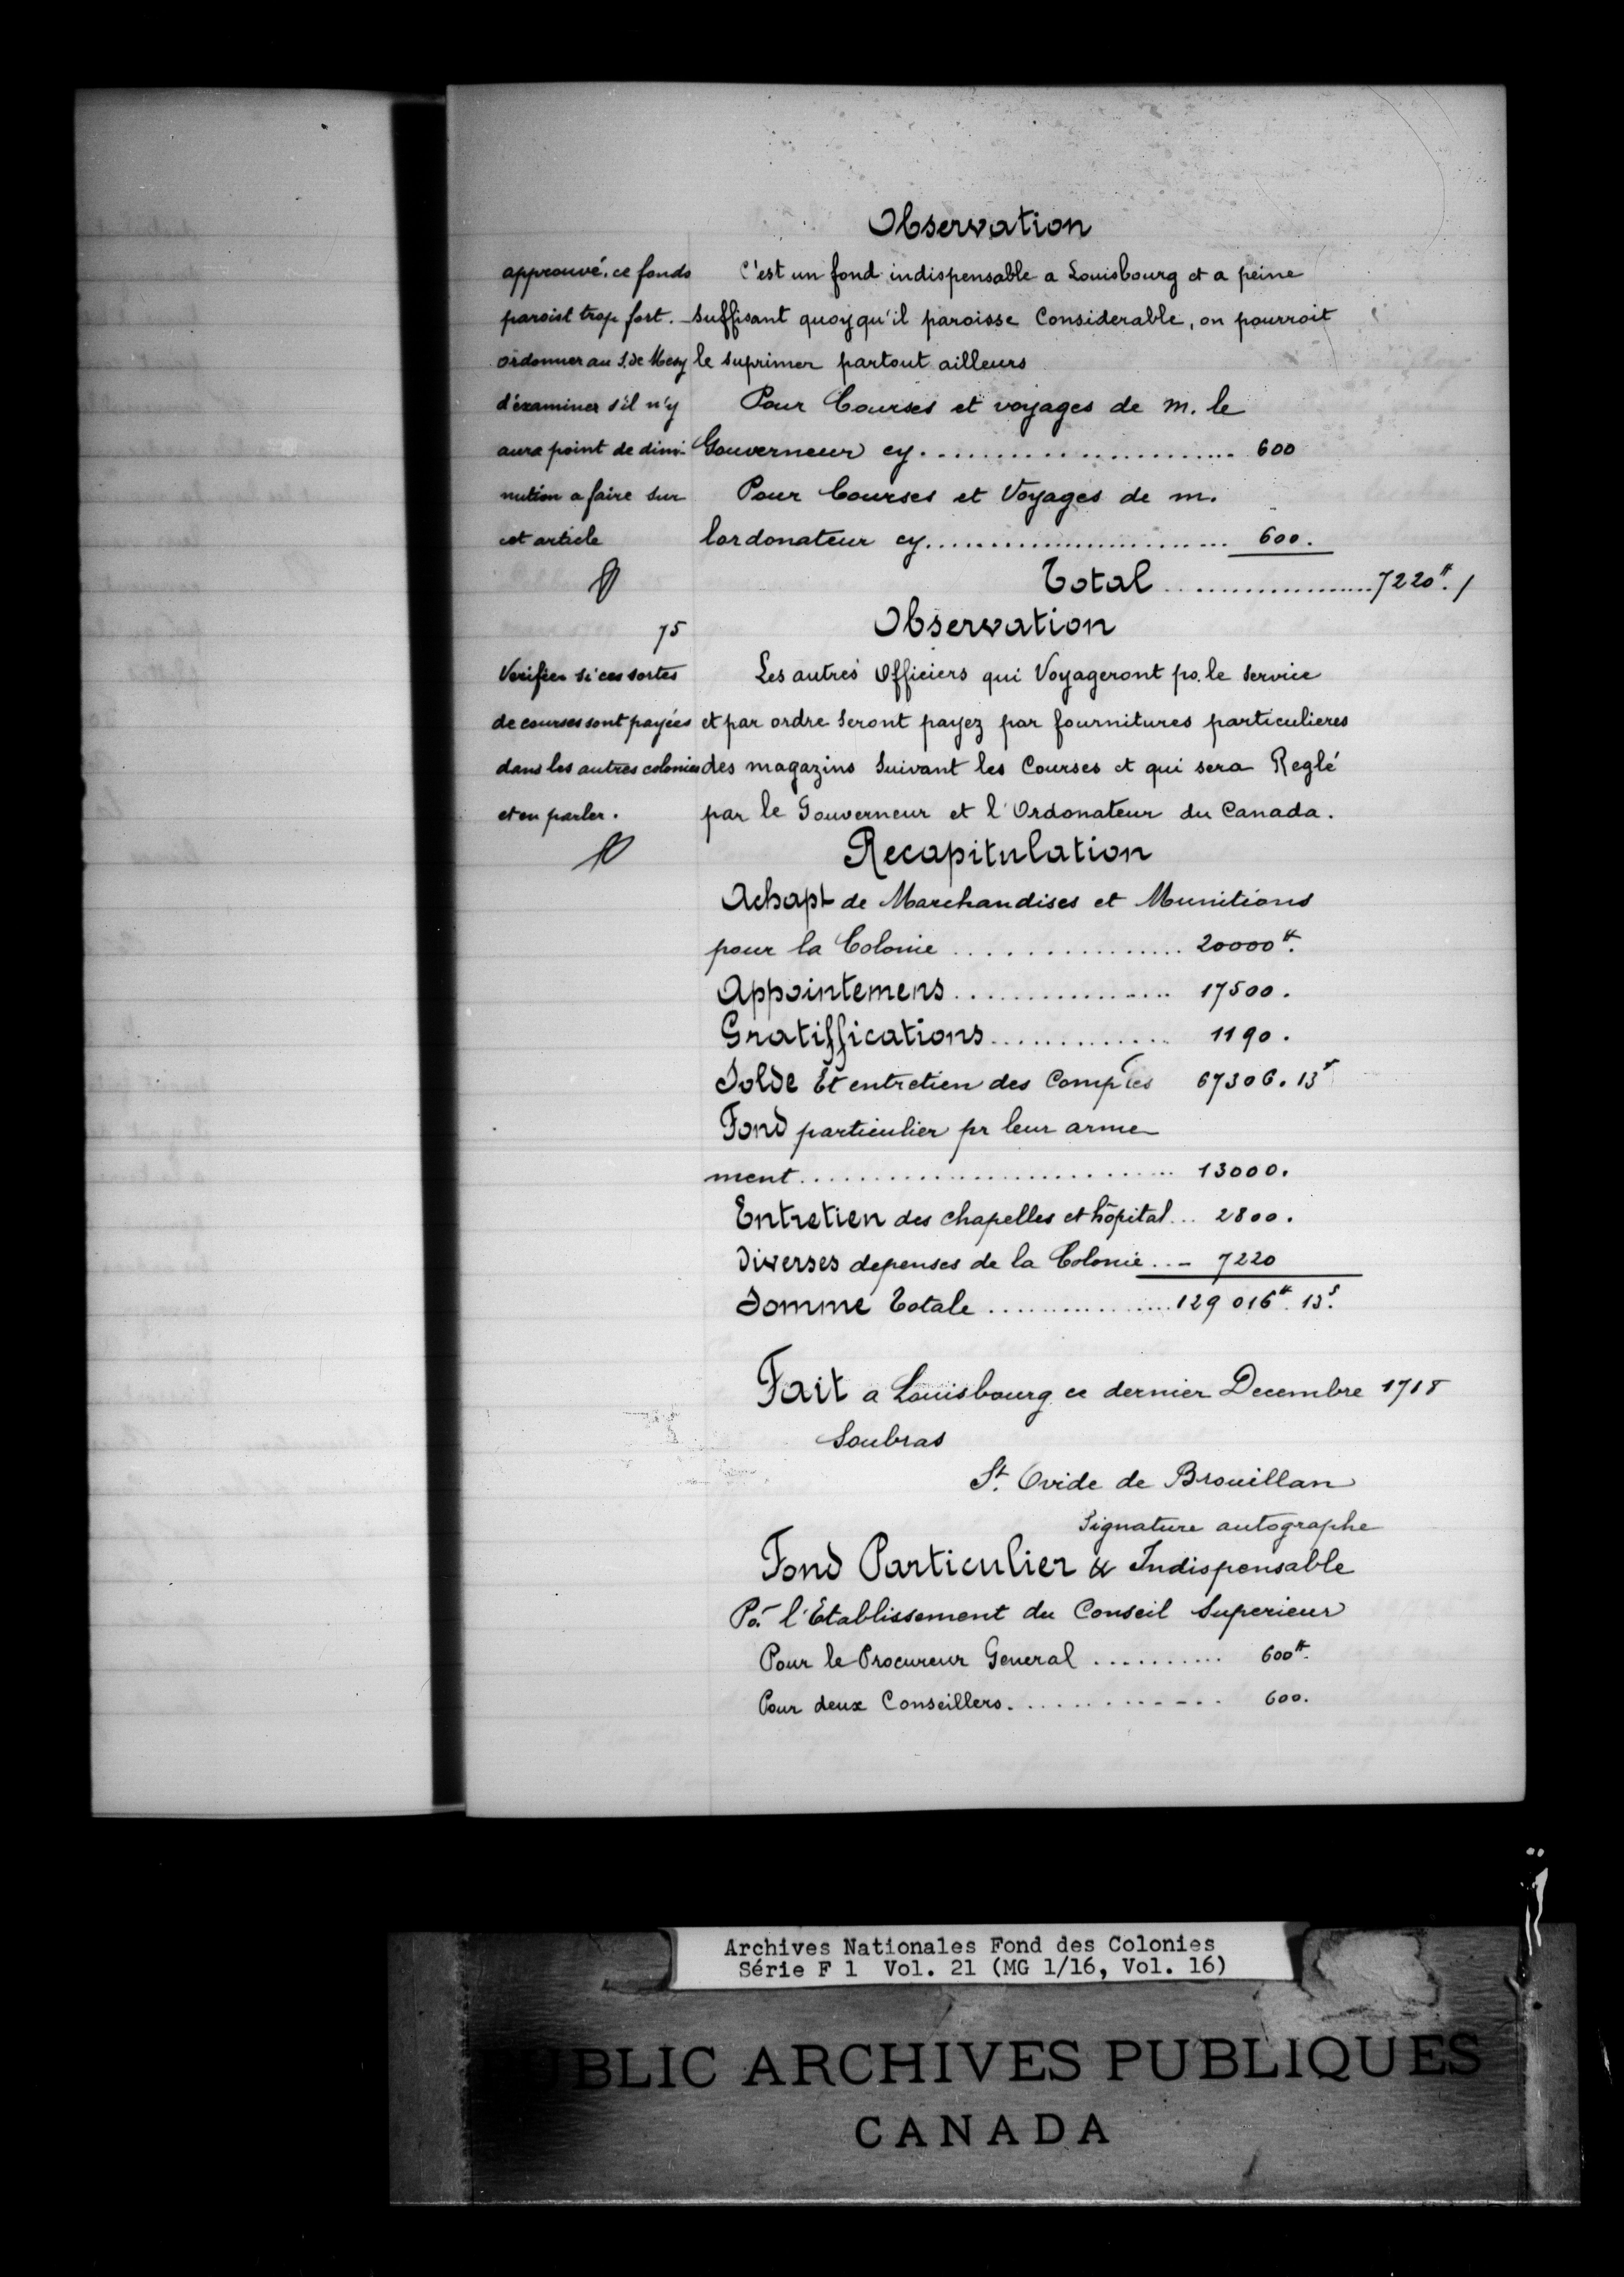 Observation
approuvé. ce fonds
paroist trop fort.
ordonner au S. de Mesy
d'éxaminer s'il n'y
aura point de dimi-
nution a faire sur
cet article
C'est un fond indispensable a Louisbourg et a peine
suffisant quoyqu'il paroisse Considerable, on pourroit
le suprimer partout ailleurs
Pour Courses et voyages de m. le
Gouverneur cy........................ 600
Pour Courses et Voyages de m.
lordonateur cy........................ 600.
Total ....................7220₶./
Observation
75
Verifier si ces sortes
de courses sont payées
dans les autres colonies
et en parler.
Les autres Officiers qui Voyageront po. le service
et par ordre seront payez par fournitures particulieres
des magazins Suivant les Courses et qui sera Reglé
par le Gouverneur et l'Ordonateur du Canada.
Recapitulation
Achapt de Marchandises et Munitions
pour la Colonie ................ 20000₶.
Appointemens................ 17500.
Gratiffications............. 1190.
Solde Et entretien des Compies 67306. 13s
Fond particulier pr leur arme
ment............................ 13000.
Entretien des chapelles et hôpital... 2800.
Diverses depenses de la Colonie..- 7220
Somme Totale ................129 016₶. 13s.
Fait a Louisbourg ce dernier Decembre 1718
Soubras
St. Ovide de Brouillan
Signature autographe
Fond Particulier & Indispensable
Po. l'Etablissement du Conseil Superieur
Pour le Procureur General .......... 600₶.
Pour deux Conseillers.............. 600.
Archives Nationales Fond des Colonies
Série F 1 Vol. 21 (MG 1/16, Vol. 16)
PUBLIC ARCHIVES PUBLIQUES
CANADA